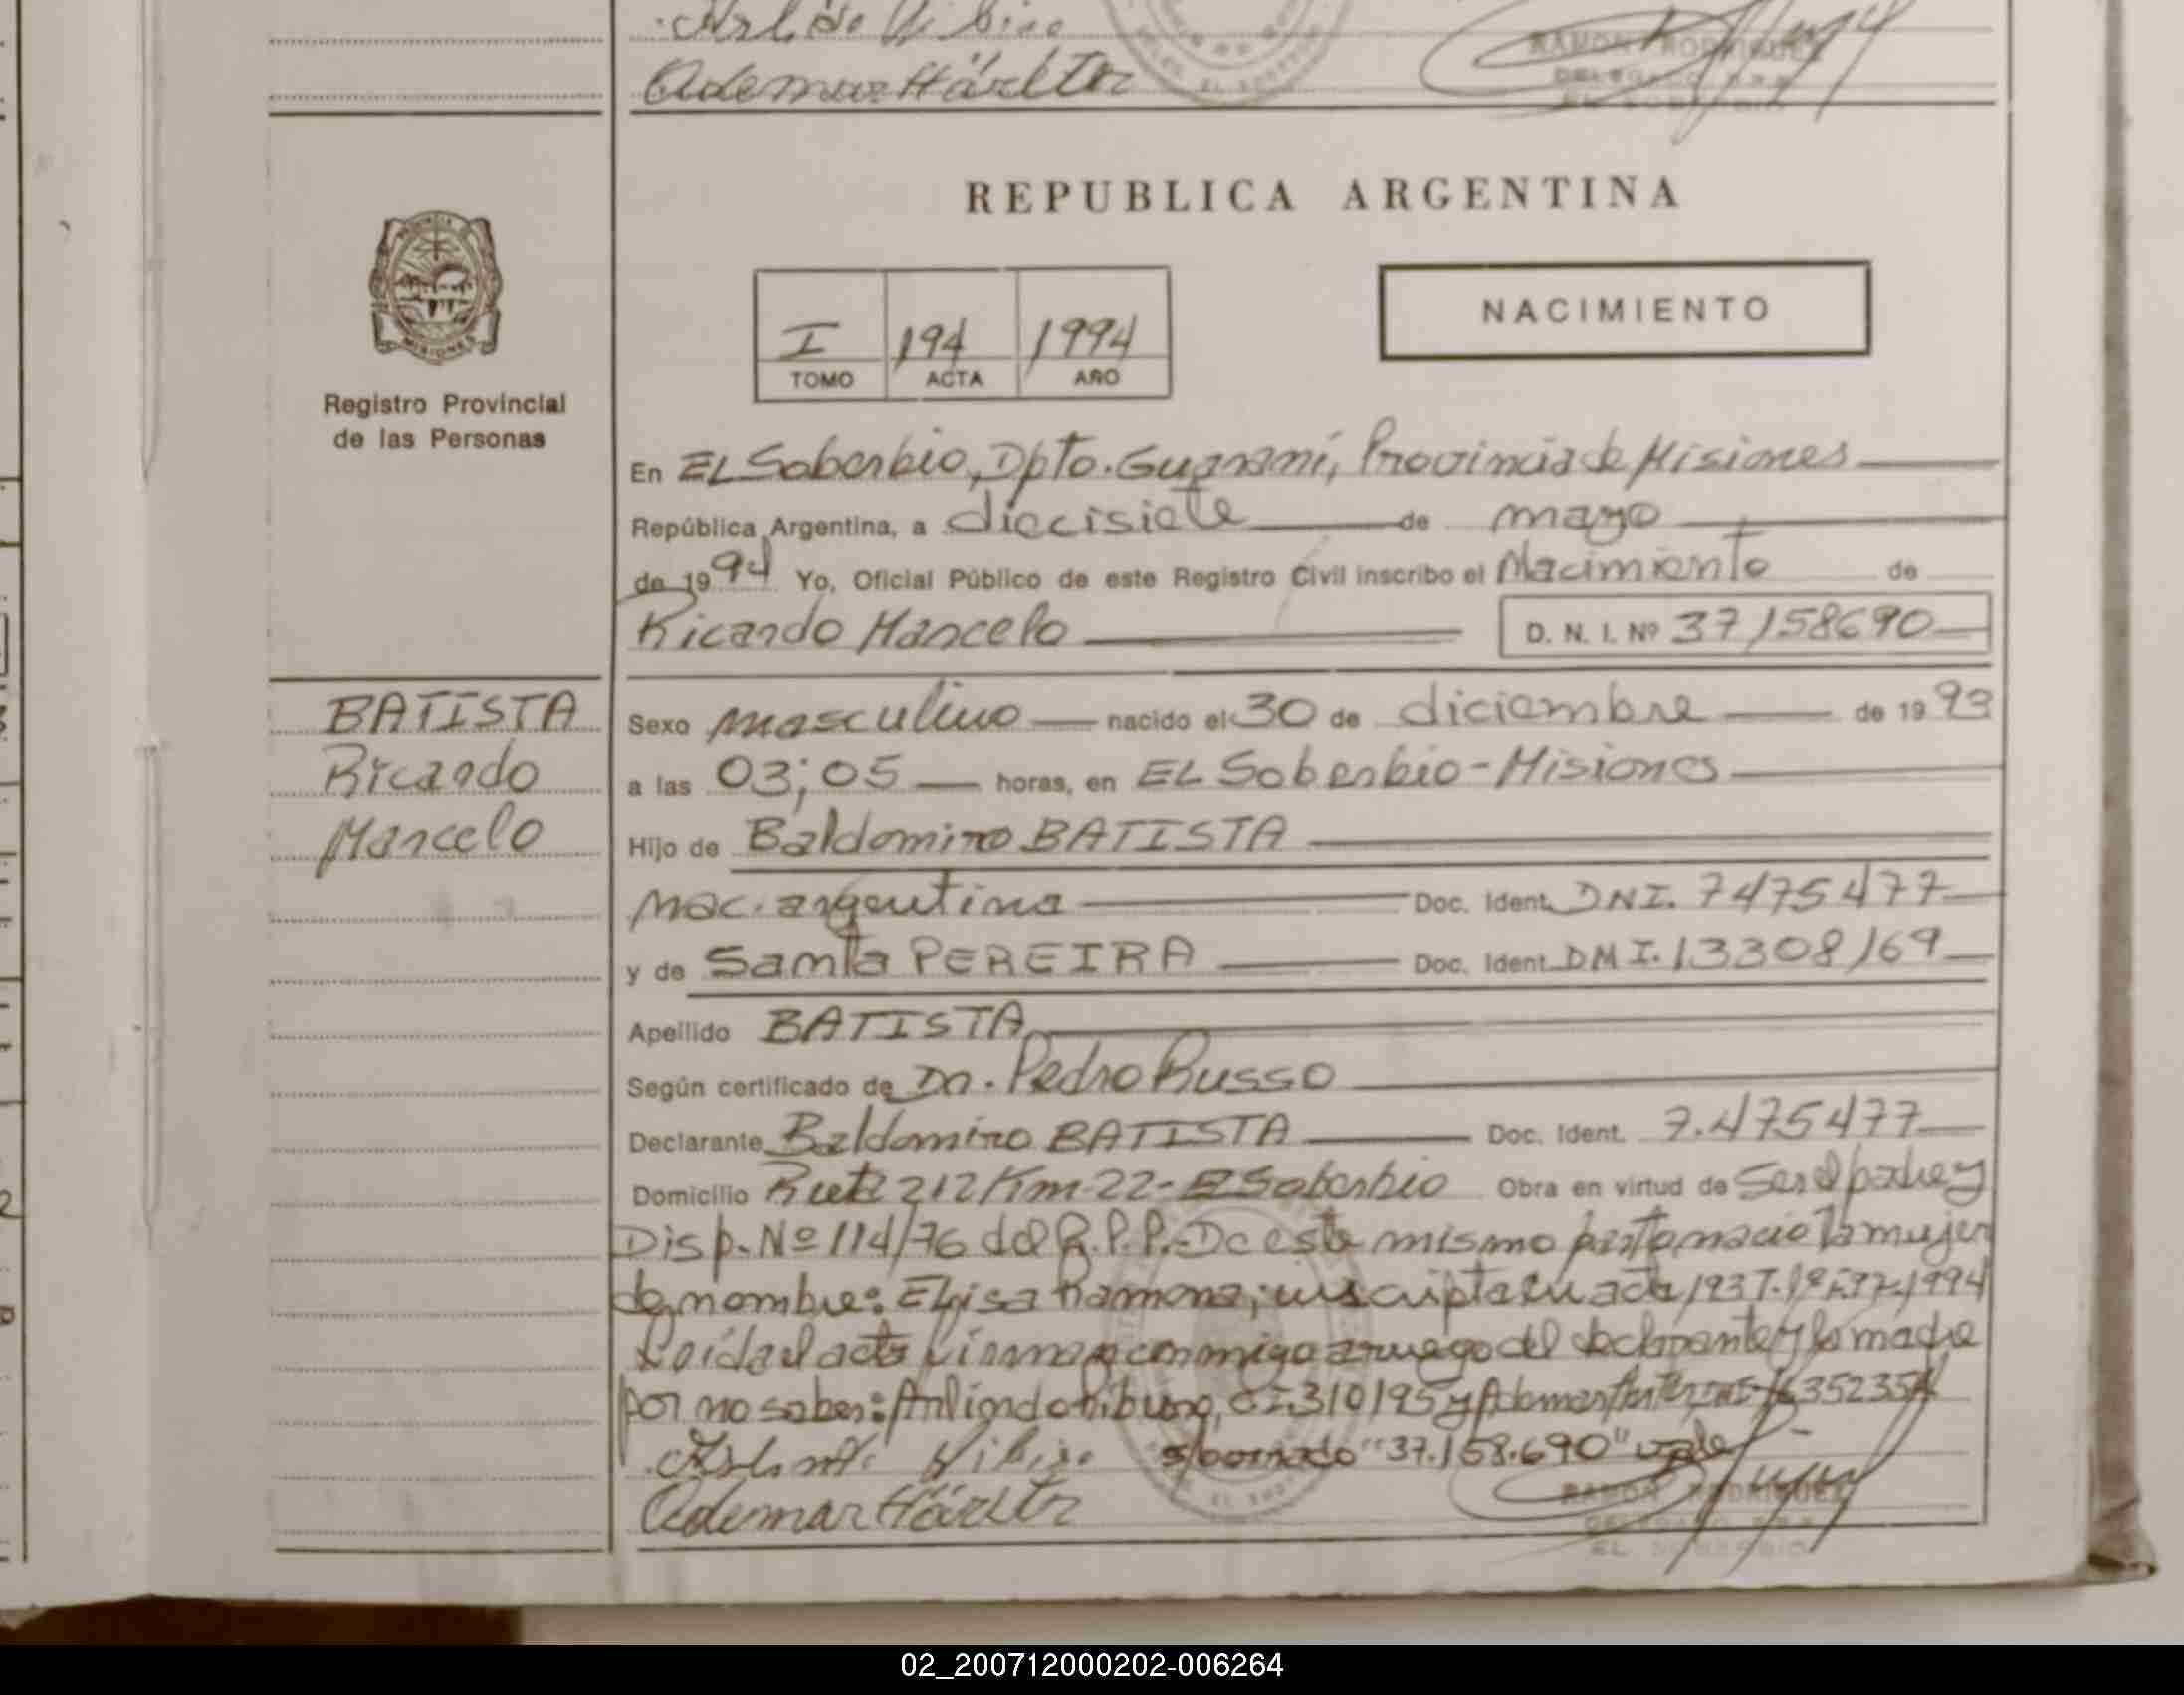 Ademar Härter
RAMON RODRIGUEZ
REPUBLICA ARGENTINA
PROVINCIA DE
MISIONES
Registro Provincial
de las Personas
I 194 1994
TOMO ACTA AÑO
NACIMIENTO
En EL Soberbio, Dpto. Guaraní, Provincia de Misiones
República Argentina, a diecisiete de mayo
de 1994 Yo, Oficial Público de este Registro Civil inscribo el Nacimiento de
Ricardo Marcelo D. N. I. Nº 37158690
BATISTA
Ricardo
Marcelo
Sexo masculino nacido el 30 de diciembre de 1993
a las 03;05 horas, en EL Soberbio-Misiones
Hijo de Baldomiro BATISTA
nac. argentina Doc. Ident. DNI. 7475477
y de Santa PEREIRA Doc. Ident. DNI. 13308169
Apellido BATISTA
Según certificado de Dr. Pedro Russo
Declarante Baldomiro BATISTA Doc. Ident. 7.475477
Domicilio Ruta 212 Km-22-El Soberbio Obra en virtud de Ser el padre y
Disp. Nº 114/76 del R.P.P. De este mismo parto nacio la mujer
de nombre: Elisa Ramona; inscripta en acta 193 T. 1º 1994
Leída el acta firman conmigo a ruego del declarante y la madre
por no saber: 310195 y Ademar Härter
s/borrado "37.158.690" vale
Ademar Härter
RAMON RODRIGUEZ
EL SOBERBIO
02_200712000202-006264